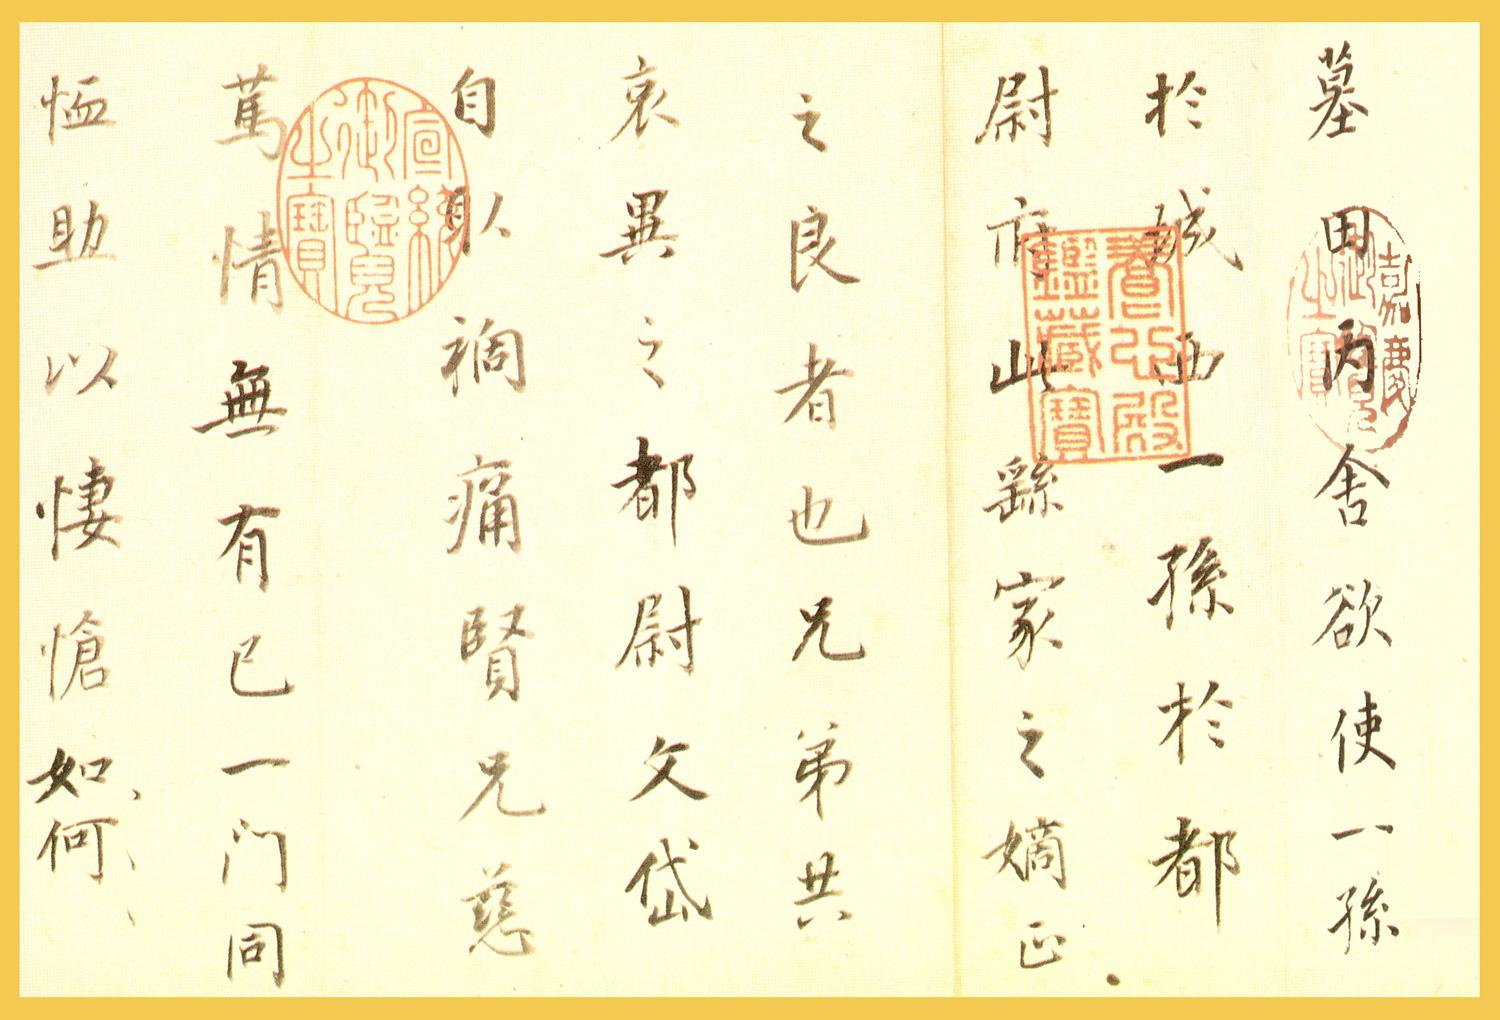 墓田丙舍欲使一孫
於城西一孫於都
尉府此繇家之嫡正
之良者也兄弟共
哀異之都尉文岱
自取禍痛賢兄慈
篤情無有已一門同
恤助以悽愴如何、、
嘉慶御覽之寶
養心殿鑑藏寶
宣統御覽之寶